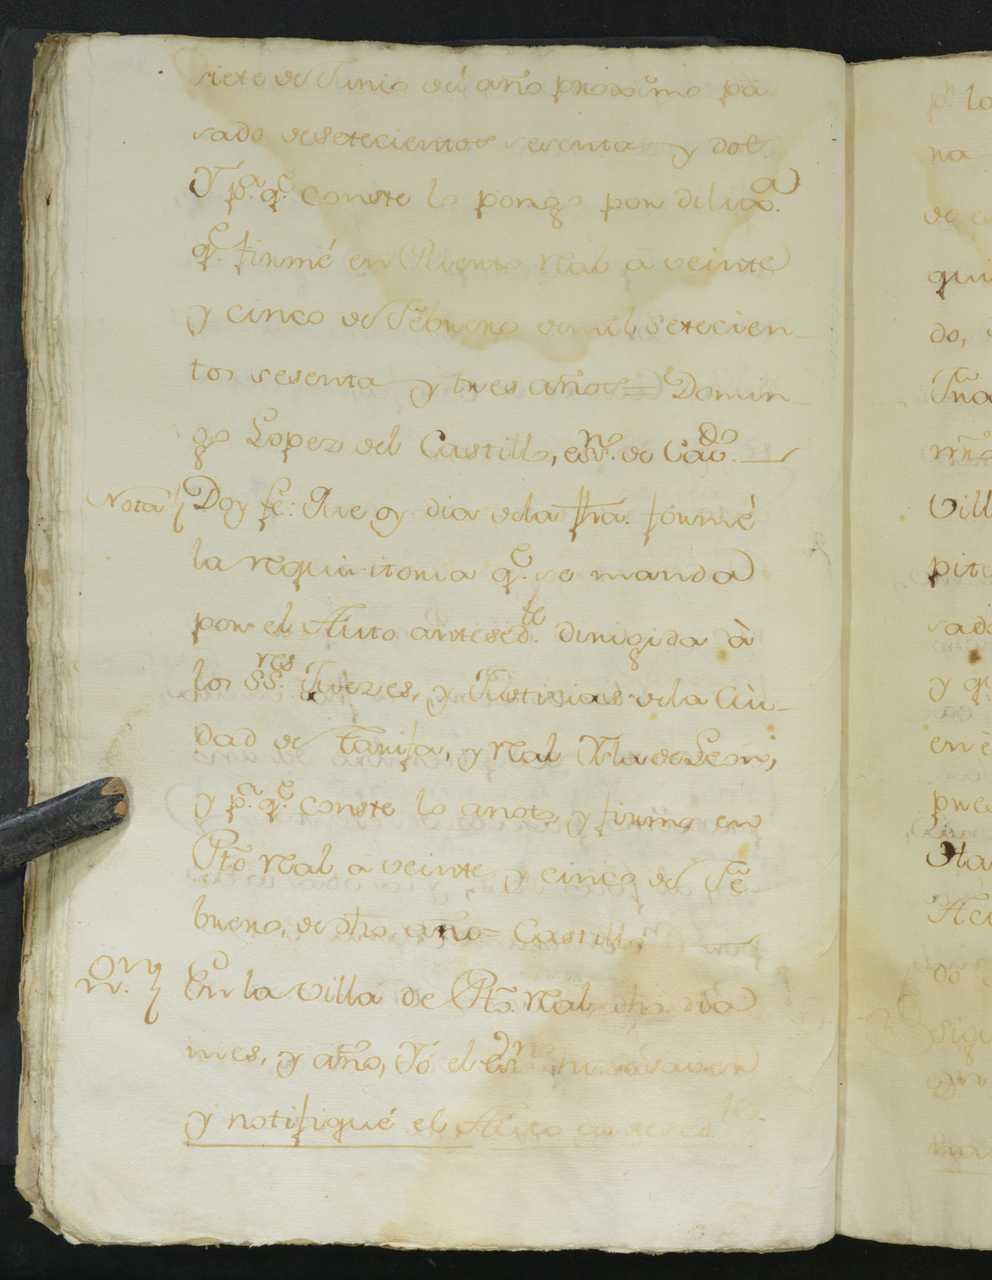 siete de Junio del año proximo pa
sado desetecientos sesenta y dos.
Y pa. qe. conste lo pongo por diliga.
qe. firmé en Puerto Real a veinte
y cinco de Febrero demil setecien
tos sesenta y tres años = Domin
go Lopez del Castillo, essno. de Cavdo.
Nota Doy fe: Que oy dia dela fha. formé
la requisitoria qe. se manda
por el Auto antesedte. dirigida à
los SSres. Juezes, y Justisias dela Ciu
dad de Tarifa, y Real Ysla de Leon,
y pa. qe. conste lo anoto, y firmo en
Pto. Real a veinte y cinco de Fe
brero, de dho. año = Castillo
En la Villa de Pto. Real dho. dia
mes, y año, Yó el Essno.
y notifiqué el Auto
pr. lo
na
quin
do,
Villa
pitu
sado
y qe
en